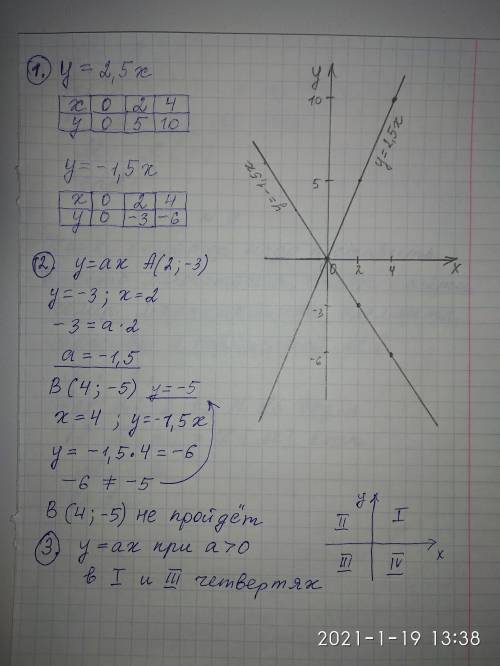 1. y = 2,5x
x 0 2 4
y 0 5 10
y = -1,5x
x 0 2 4
y 0 -3 -6
y
10
5
0 2 4 x
-3
-6
y=2,5x
y=-1,5x
2. y=ax A(2;-3)
y=-3; x=2
-3=a·2
a=-1,5
B(4;-5) y=-5
x=4 ; y=-1,5x
y= -1,5·4=-6
-6 ≠ -5
B(4;-5) не пройдёт
3. y=ax при a>0
в I и III четвертях
y
II I
x
III IV
2021-1-19 13:38